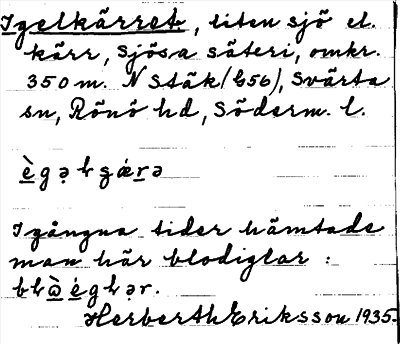 Igelkärret, liten sjö el.
kärr, Sjösa säteri, omkr.
350 m. N Stäk (G56), Svärta
sn, Rönö hd, Söderm. l.
I gångna tider hämtade
man här blodiglar :
Herberth Eriksson 1935.